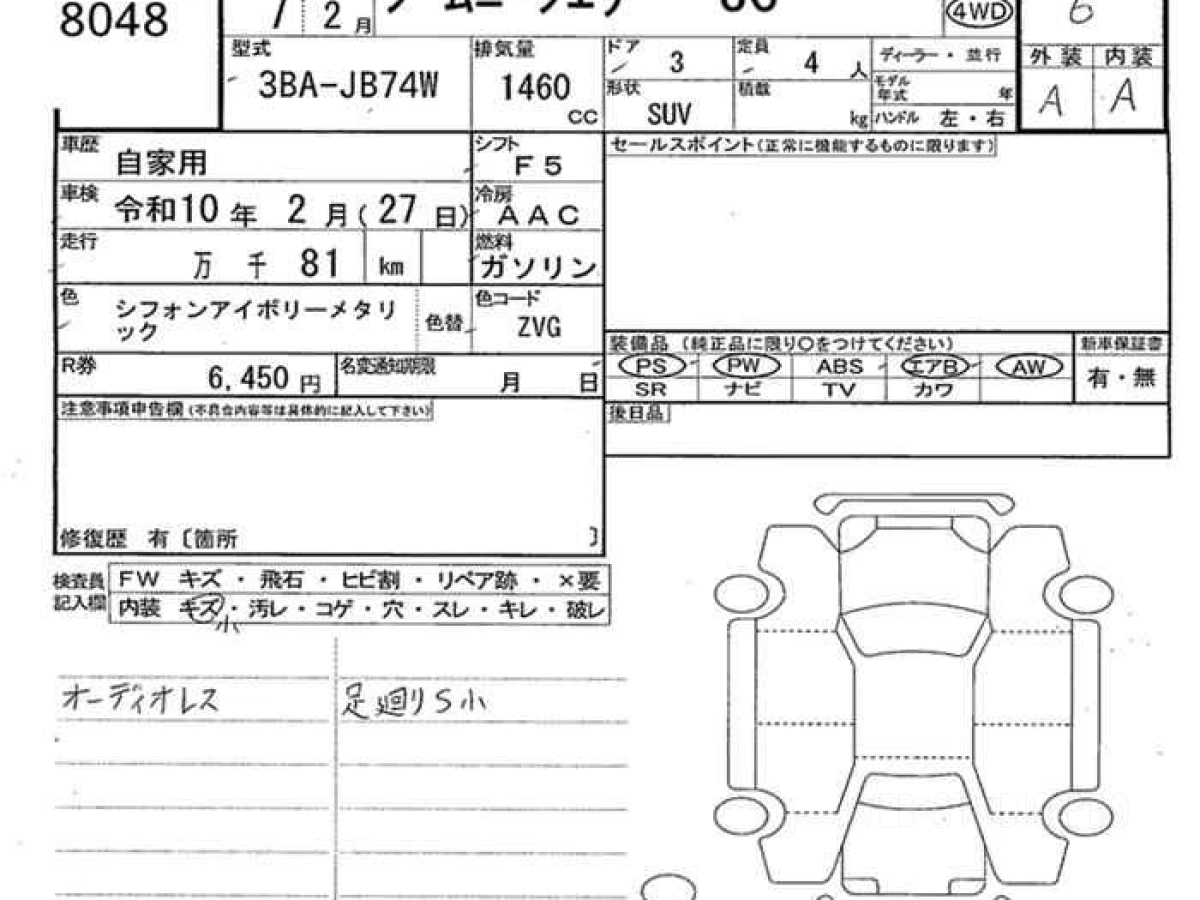 8048
7 2 月
4WD
6
型式
3BA-JB74W
排気量
1460
CC
ドア
3
定員
4 人
ディーラー・並行
外装 内装
形状
SUV
積載
kg
モデル年式 年
ハンドル 左・右
A A
車歴
自家用
シフト
F5
セールスポイント(正常に機能するものに限ります)
車検
令和10 年 2 月( 27 日)
冷房
AAC
走行
万 千 81 km
燃料
ガソリン
色
シフォンアイボリーメタリ
ック
色替
色コード
ZVG
装備品 (純正品に限り○をつけてください)
新車保証書
PS PW ABS エアB AW
有・無
SR ナビ TV カワ
R券
6,450 円
名変通知期限
月 日
注意事項申告欄(不具合内容等は具体的に記入して下さい)
後日品
修復歴 有〔箇所 〕
検査員
記入欄
FW キズ・飛石・ヒビ割・リペア跡・×要
内装 キズ・汚レ・コゲ・穴・スレ・キレ・破レ
小
オーディオレス
足廻りS小